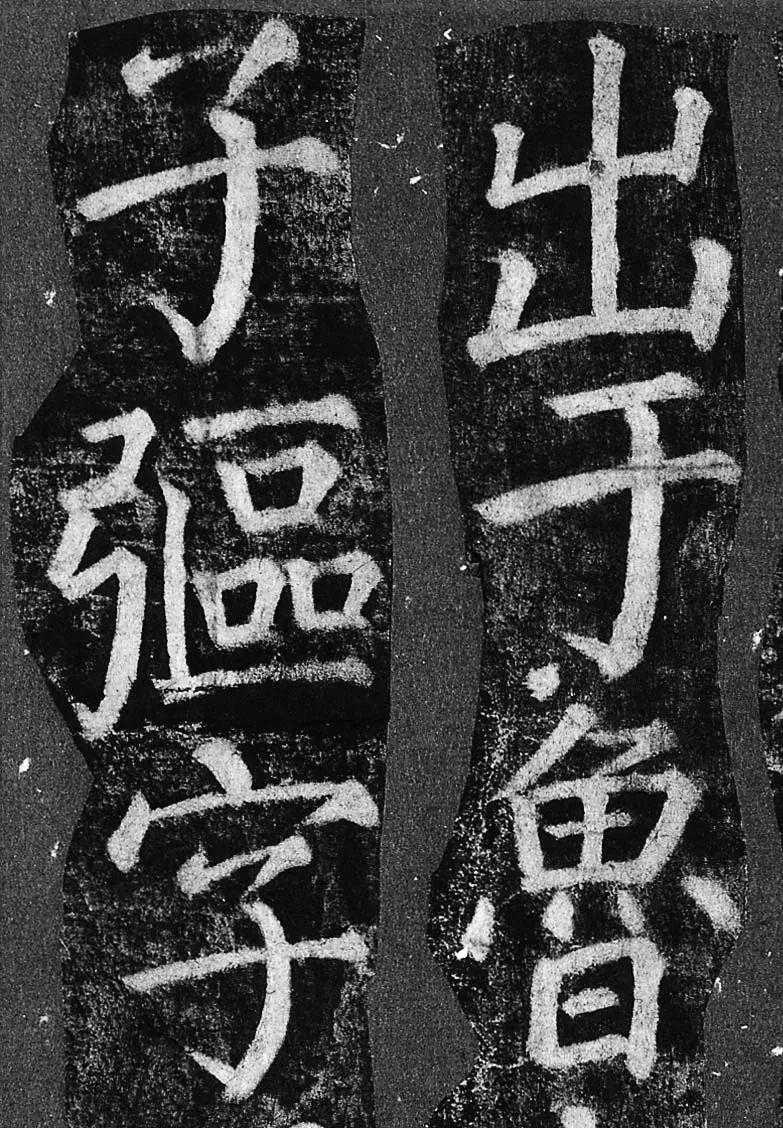 出于魯
子彄字